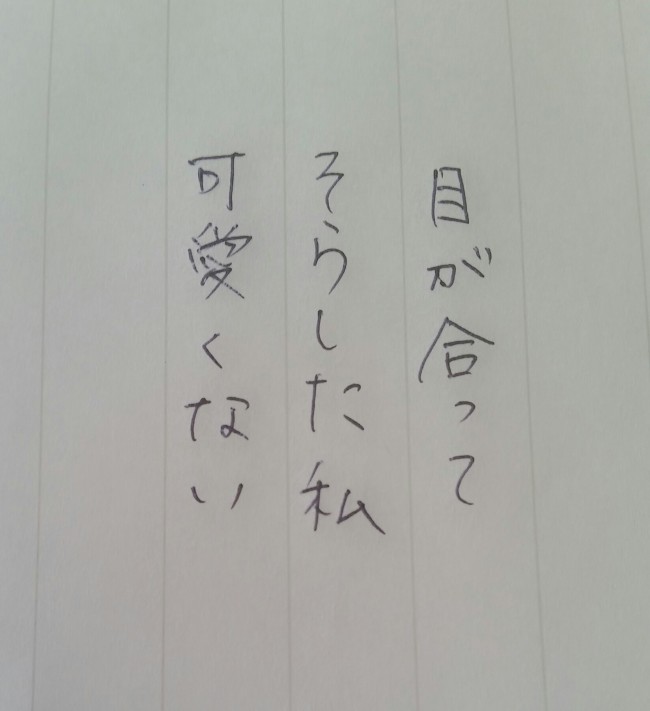 目が合って
そらした私
可愛くない